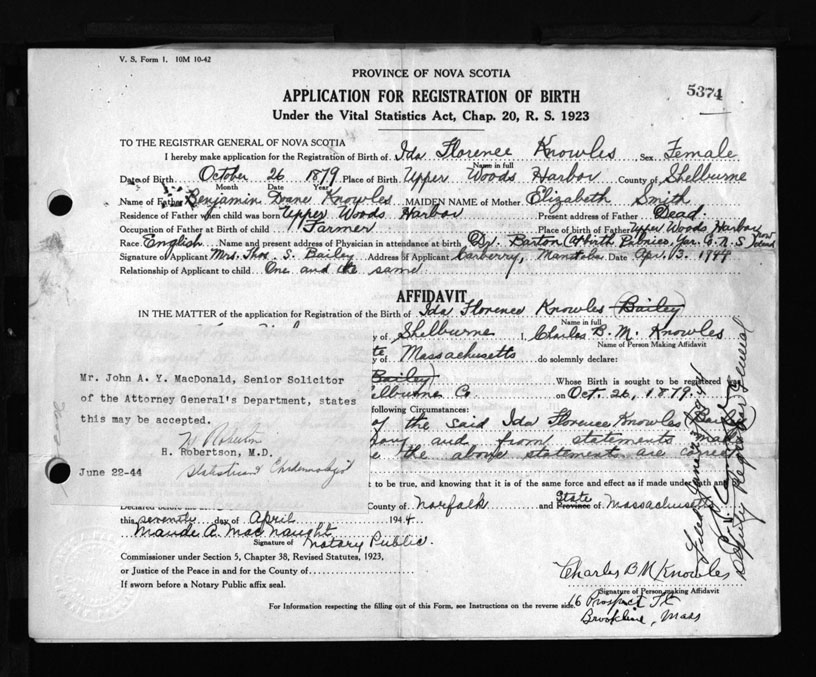 V. S. Form 1. 10M 10-42
PROVINCE OF NOVA SCOTIA
5374
APPLICATION FOR REGISTRATION OF BIRTH
Under the Vital Statistics Act, Chap. 20, R. S. 1923
TO THE REGISTRAR GENERAL OF NOVA SCOTIA
I hereby make application for the Registration of Birth of Ida Florence Knowles Sex Female
Name in full
Date of Birth October 26 1879 Place of Birth Upper Woods Harbor County of Shelburne
Month Date Year
Name of Father Benjamin Doane Knowles MAIDEN NAME of Mother Elizabeth Smith
Residence of Father when child was born Upper Woods Harbor Present address of Father Dead.
Occupation of Father at Birth of child Farmer Place of birth of Father Upper Woods Harbor
Race English Name and present address of Physician in attendance at birth Dr. Barton Pubnico, Yar. Co. N. S
Signature of Applicant Mrs. Thos. S. Bailey Address of Applicant Carberry, Manitoba Date Apr. 13. 1944
Relationship of Applicant to child One and the same
AFFIDAVIT
IN THE MATTER of the application for Registration of the Birth of Ida Florence Knowles (Bailey)
Name in full
y of Shelburne I, Charles B. M. Knowles
Name of Person Making Affidavit
y of Massachusetts do solemnly declare:
Bailey) Whose Birth is sought to be registered
elburne Co on Oct. 26, 1879.
following Circumstances:
of the said Ida Florence Knowles
and from statements
the above statements are
t to be true, and knowing that it is of the same force and effect as if made under
Mr. John A. Y. MacDonald, Senior Solicitor
of the Attorney General's Department, states
this may be accepted.
H. Robertson, M.D.
June 22-44
Declared before me County of Norfolk and State Province of Massachusetts
this seventh day of April 1944
Maude A. MacNaught
Signature of Notary Public.
Commissioner under Section 5, Chapter 38, Revised Statutes, 1923,
or Justice of the Peace in and for the County of
If sworn before a Notary Public affix seal.
Charles B M Knowles
Signature of Person making Affidavit
16 Prospect St
Brookline, Mass
For Information respecting the filling out of this Form, see Instructions on the reverse side.
Deputy Registrar General